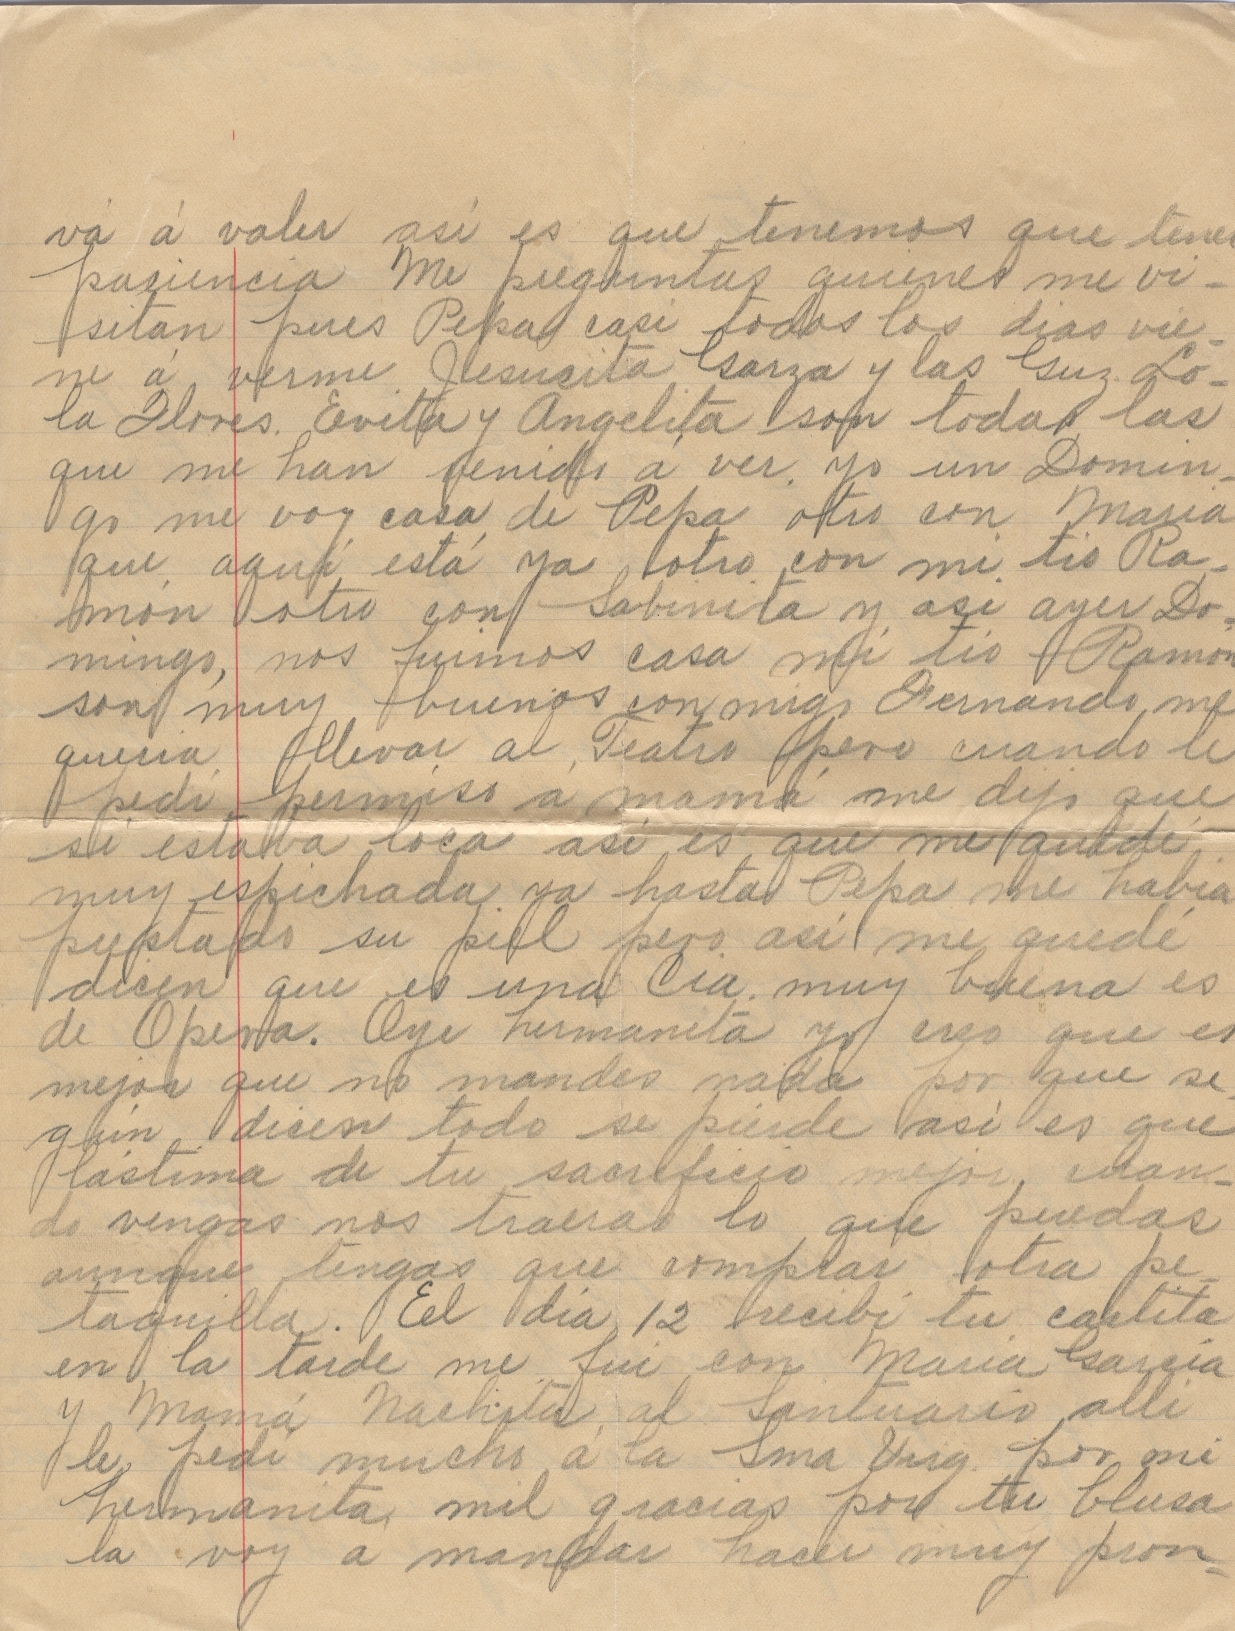 vá á valer así es que tenemos que tener
pasiencia Me preguntas quienes me vi-
sitan pues Pepa casi todos los dias vie-
ne á verme Jesusita Garza y las Guz. Lo-
la Flores. Evita y Angelita son todas las
que me han venido á ver. yo un Domin-
go me voy casa de Pepa otro con Maria
que aquí está ya otro con mi tio Ra-
món otro con Sabinita y asi ayer Do-
mingo, nos fuimos casa mi tio Ramón
son muy buenos con migo Fernando me
queria llevar al Teatro pero cuando le
pedí permiso á mamá me dijo que
si estava loca así es que me quedé
muy espichada ya hasta Pepa me habia
prestado su piel pero así me quedé
dicen que es una Cía. muy buena es
de Opera. Oye hermanita yo creo que es
mejor que no mandes nada por que se-
gún dicen todo se pierde así es que
lástima de tu sacreficio mejor cuan-
do vengas nos traeras lo que puedas
aunque tengas que comprar otra pe-
taquilla. Eel día 12 recibí tu cartita
en la tarde me fui con Maria García
y Mamá Nachita al Santuario allí
le pedí mucho á la Sma Virg. por mi
hermanita, mil gracias por tu blusa
la voy a mandar hacer muy pron-